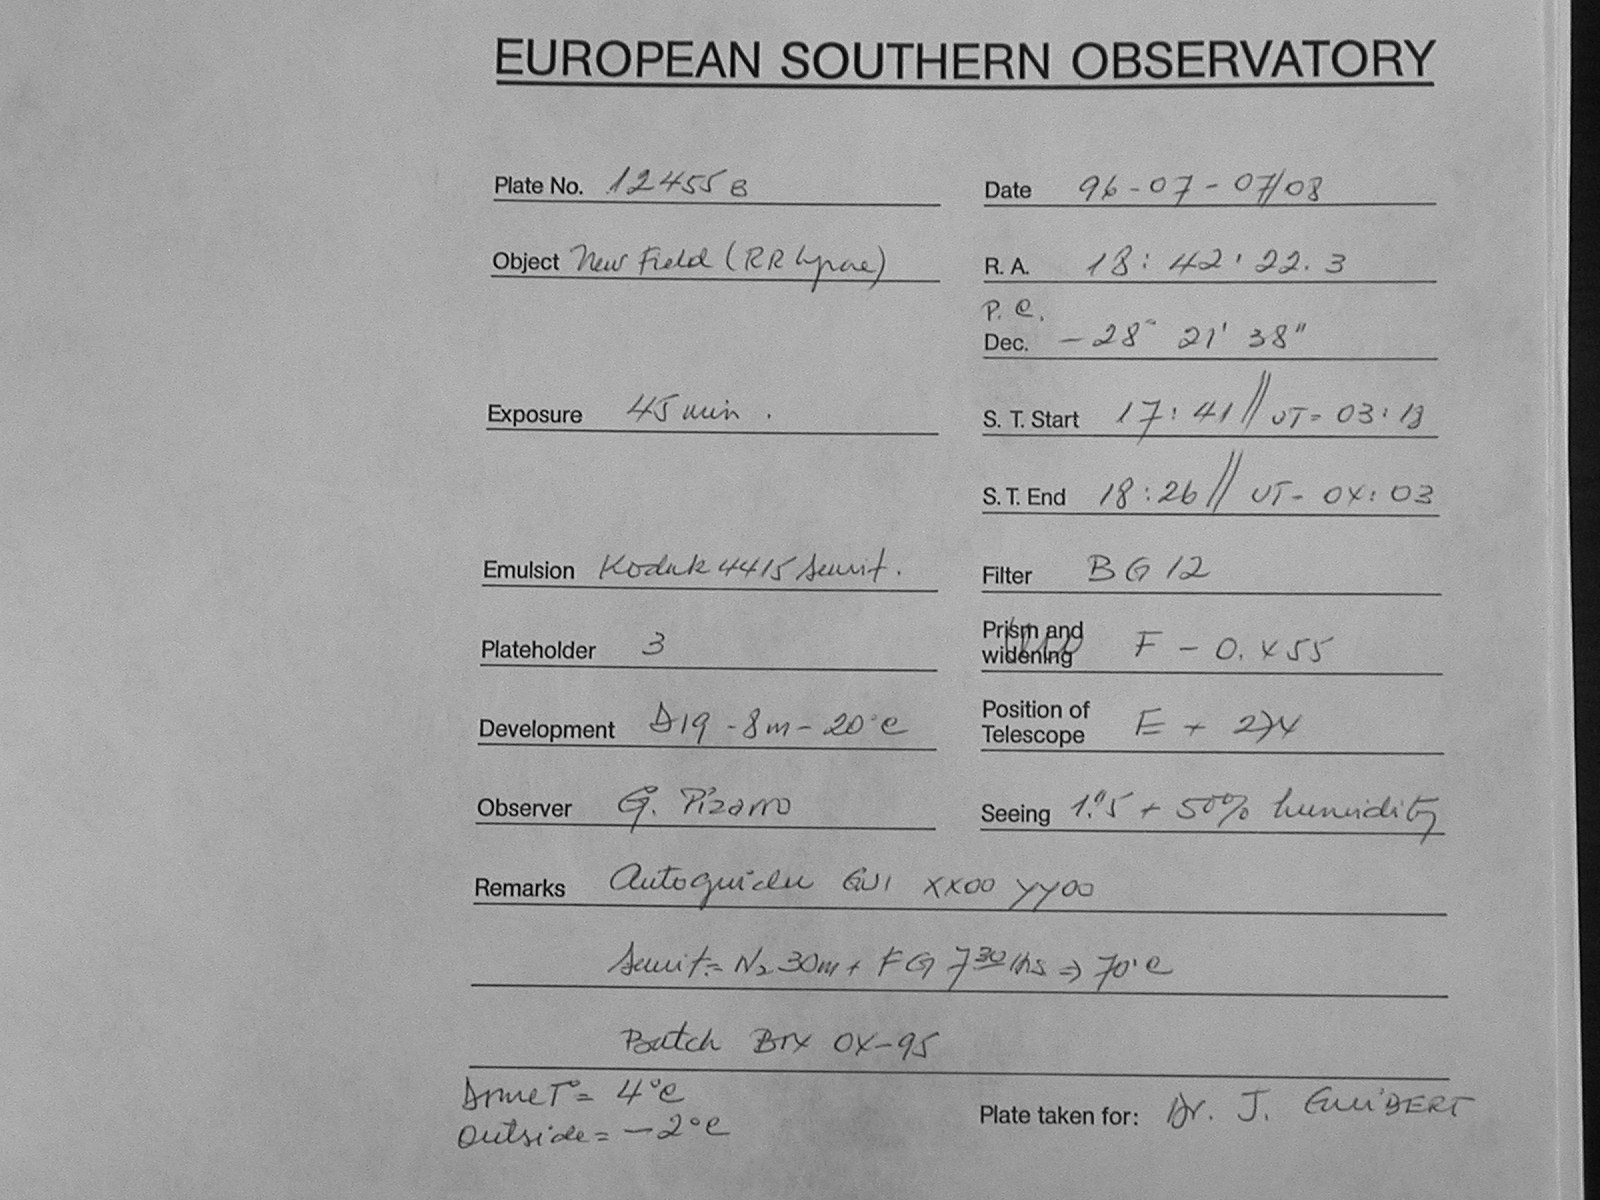 EUROPEAN SOUTHERN OBSERVATORY
Plate No. 12455 B
Date 96-07-07/08
Object New Field (RR Lyrae)
R. A. 18: 42: 22.3
P. e.
Dec. -28° 21' 38"
Exposure 45 min.
S. T. Start 17:41 // UT= 03:18
S. T. End 18:26 // UT- 04:03
Emulsion Kodak 4415 Sensit.
Filter BG 12
Plateholder 3
Prism and widening F - 0.455
Development D19 - 8m - 20°C
Position of Telescope E + 274
Observer G. Pizarro
Seeing 1."5 + 50% humidity
Remarks Autoguider GU1 XX00 YY00
Sensit= N2 30m + FG 7 30 hs => 70°C
Batch 04-95
Dome T°= 4°C
Outside= -2°C
Plate taken for: Dr. J. GUIBERT